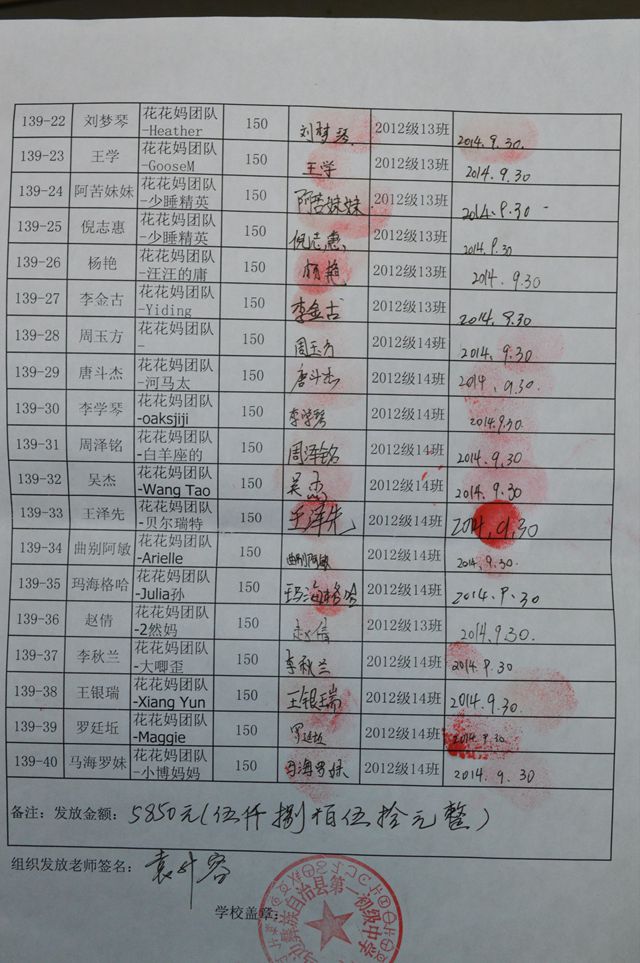 139-22 刘梦琴 花花妈团队-Heather 150 刘梦琴 2012级13班 2014.9.30.
139-23 王学 花花妈团队-GooseM 150 王学 2012级13班 2014.9.30
139-24 阿苦妹妹 花花妈团队-少睡精英 150 阿苦妹妹 2012级13班 2014.9.30
139-25 倪志惠 花花妈团队-少睡精英 150 倪志惠 2012级13班 2014.9.30
139-26 杨艳 花花妈团队-汪汪的庸 150 杨艳 2012级13班 2014.9.30
139-27 李金古 花花妈团队-Yiding 150 李金古 2012级13班 2014.9.30
139-28 周玉方 花花妈团队- 150 周玉方 2012级14班 2014.9.30
139-29 唐斗杰 花花妈团队-河马太 150 唐斗杰 2012级14班 2014.9.30.
139-30 李学琴 花花妈团队-oaksjiji 150 李学琴 2012级14班 2014.9.30.
139-31 周泽铭 花花妈团队-白羊座的 150 周泽铭 2012级14班 2014.9.30
139-32 吴杰 花花妈团队-Wang Tao 150 吴杰 2012级14班 2014.9.30
139-33 王泽先 花花妈团队-贝尔瑞特 150 王泽先 2012级14班 2014.9.30
139-34 曲别阿敏 花花妈团队-Arielle 150 曲别阿敏 2012级14班 2014.9.30.
139-35 玛海格哈 花花妈团队-Julia孙 150 玛海格哈 2012级14班 2014.9.30
139-36 赵倩 花花妈团队-2然妈 150 赵倩 2012级13班 2014.9.30.
139-37 李秋兰 花花妈团队-大唧歪 150 李秋兰 2012级14班 2014.9.30
139-38 王银瑞 花花妈团队-Xiang Yun 150 王银瑞 2012级14班 2014.9.30.
139-39 罗廷坵 花花妈团队-Maggie 150 罗廷坵 2012级14班 2014.9.30
139-40 马海罗妹 花花妈团队-小博妈妈 150 马海罗妹 2012级14班 2014.9.30
备注：发放金额：5850元(伍仟捌佰伍拾元整)
组织发放老师签名：
学校盖章：
彝族自治县第一初级中学